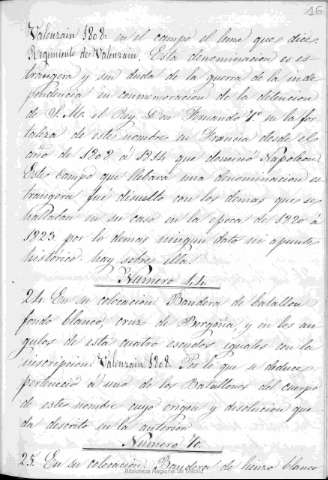 16
Valenzain 1808. en el campo el lema que dice:
Regimiento de Valenzain. Esta denominacion es es-
trangera y sin duda de la guerra de la inde
pendencia en conmemoracion de la detencion
de S. M. el Rey Dn Fernando 7º en la for
taleza de este nombre en Francia desde el
año de 1808 á 1814 que dominó Napoleon.
Este cuerpo que llebara una denominacion es
trangera fué disuelto con los demas que se
hallaban en su caso en la epoca de 1820 á
1823. por lo demas ningun dato ni apunte
historico hay sobre ella.
Numero 44.
24. En su colocacion Bandera de batallon
fondo blanco, cruz de Borgoña, y en los an
gulos de esta cuatro escudos iguales con la
inscripcion: Valenzain 1808. Por lo que se deduce
perteneció a uno de los Batallones del cuerpo
de este nombre cuyo origen y disolucion que
da descrito en la anterior.
Numero
25. En su colocacion. Bandera de lienzo blanco
Biblioteca Regional de Madrid